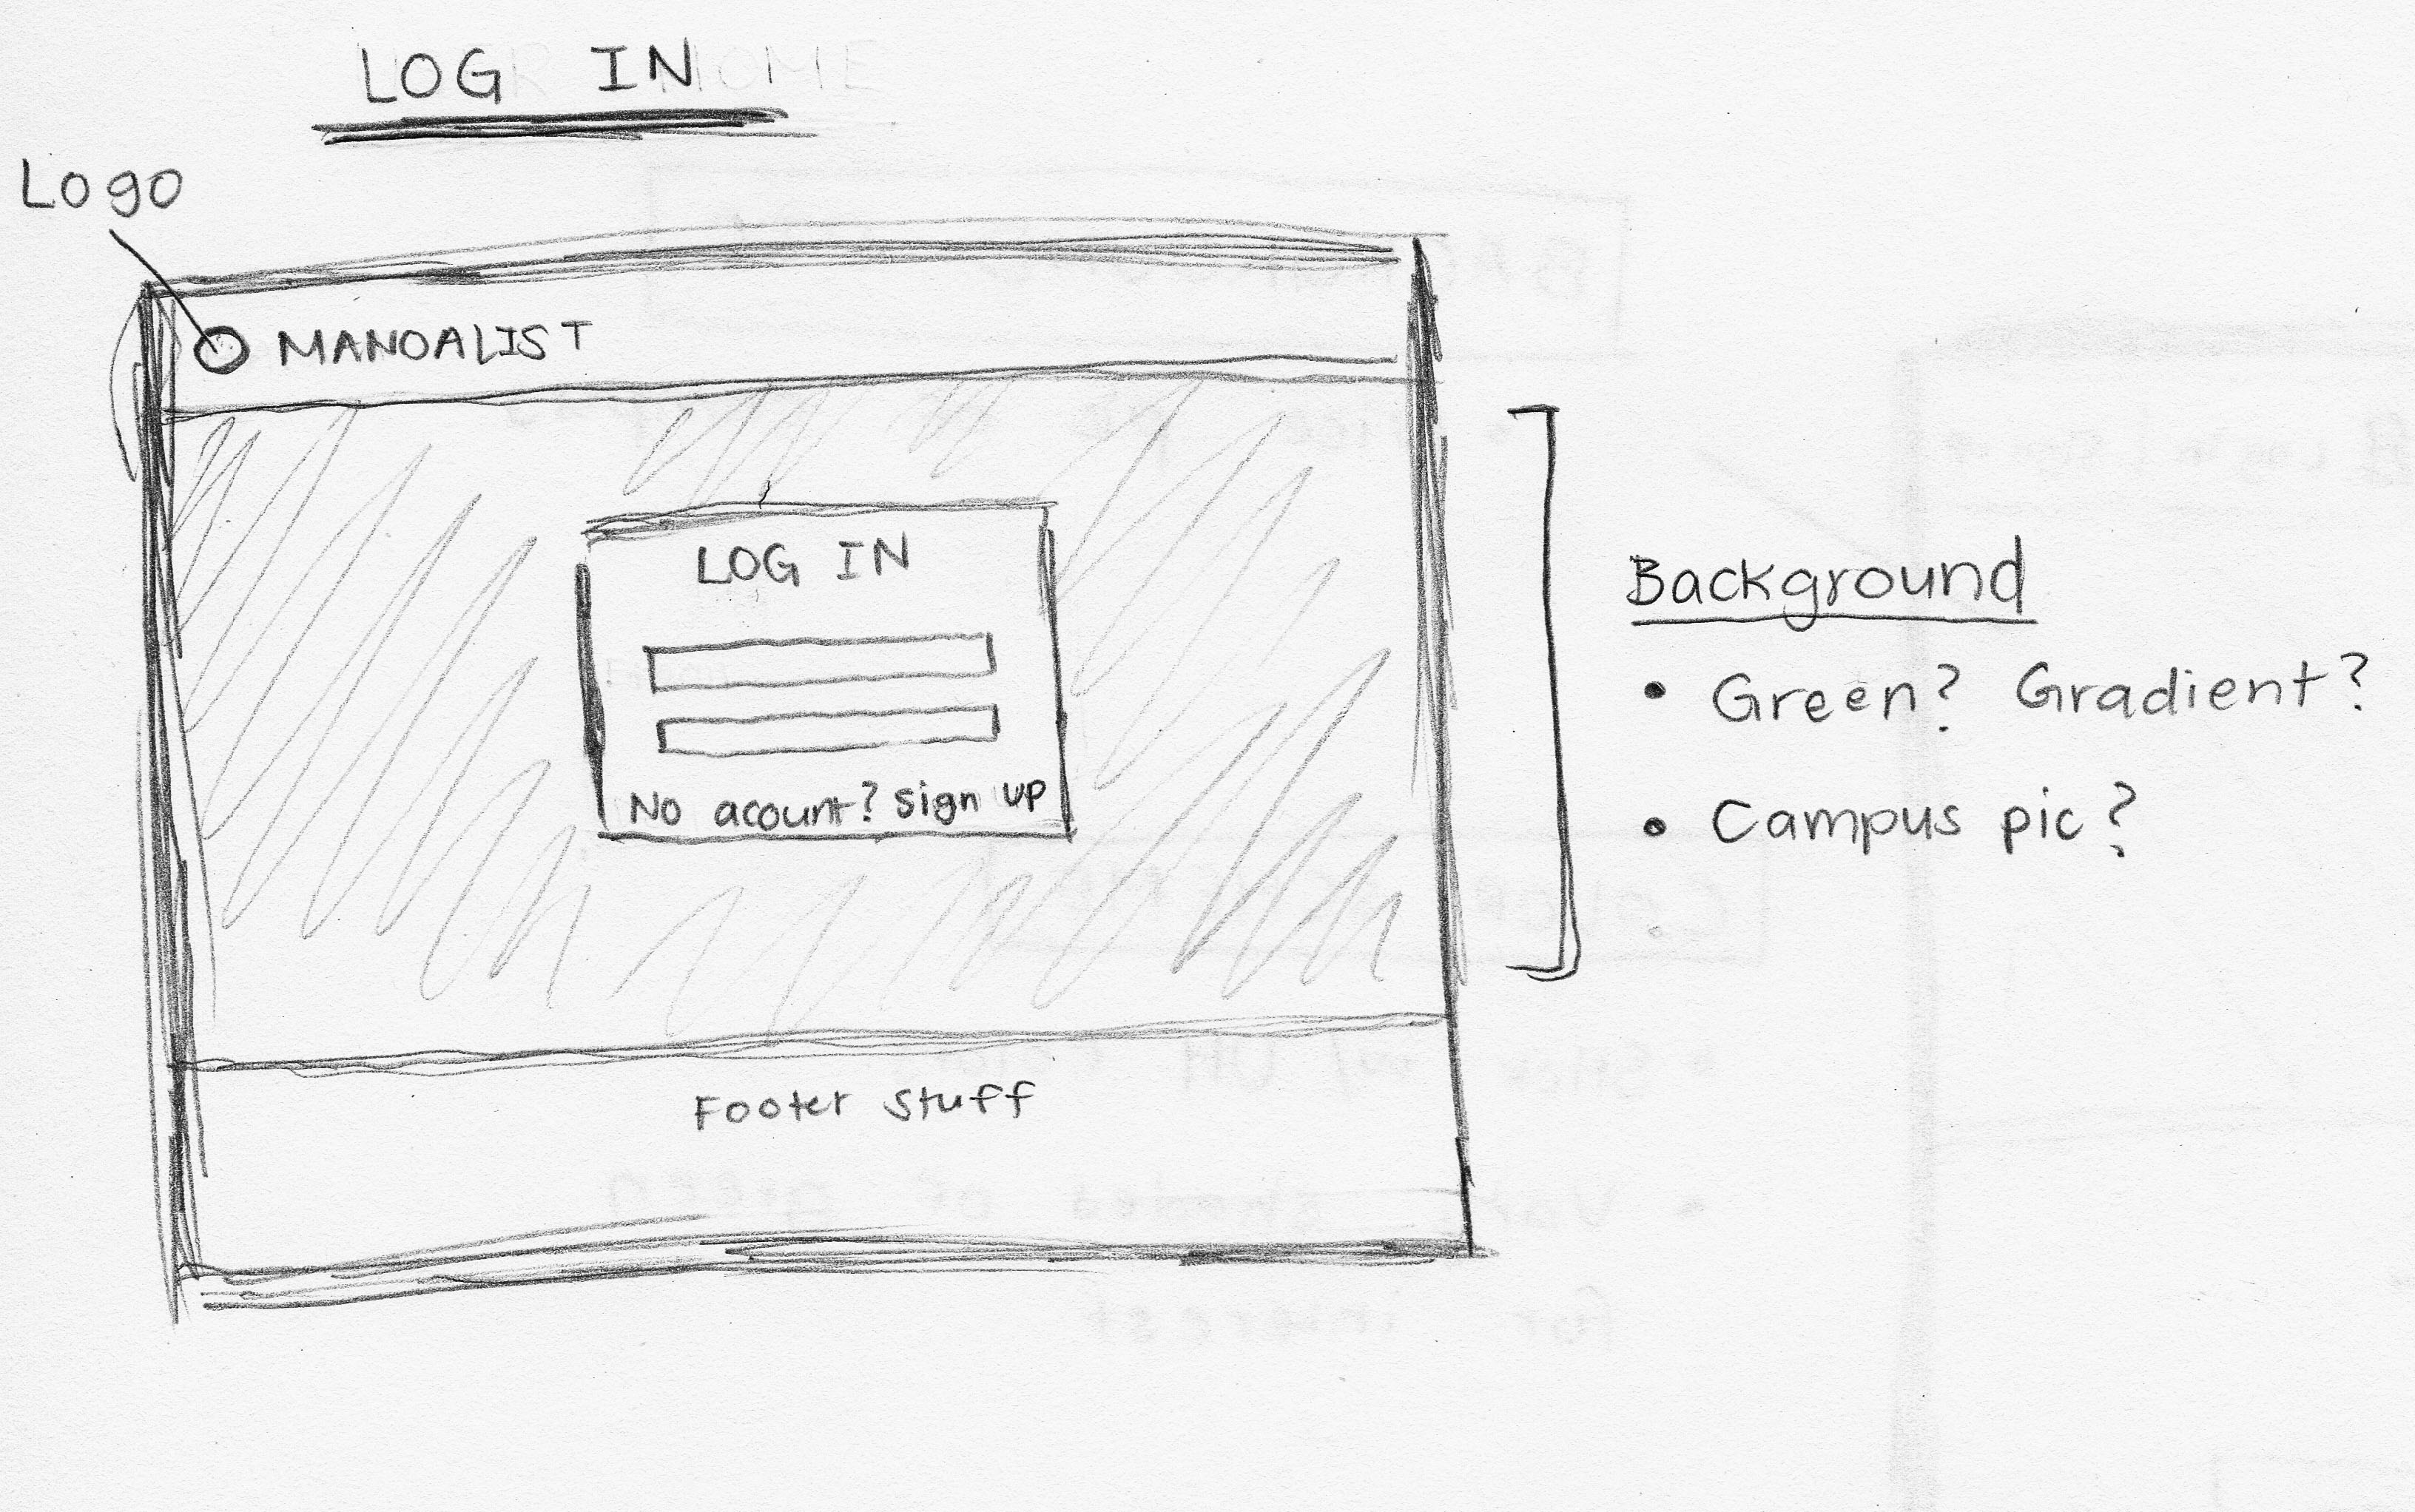 LOG IN
Logo
MANOALIST
LOG IN
No acount? Sign up
Footer Stuff
Background
• Green? Gradient?
• Campus pic?